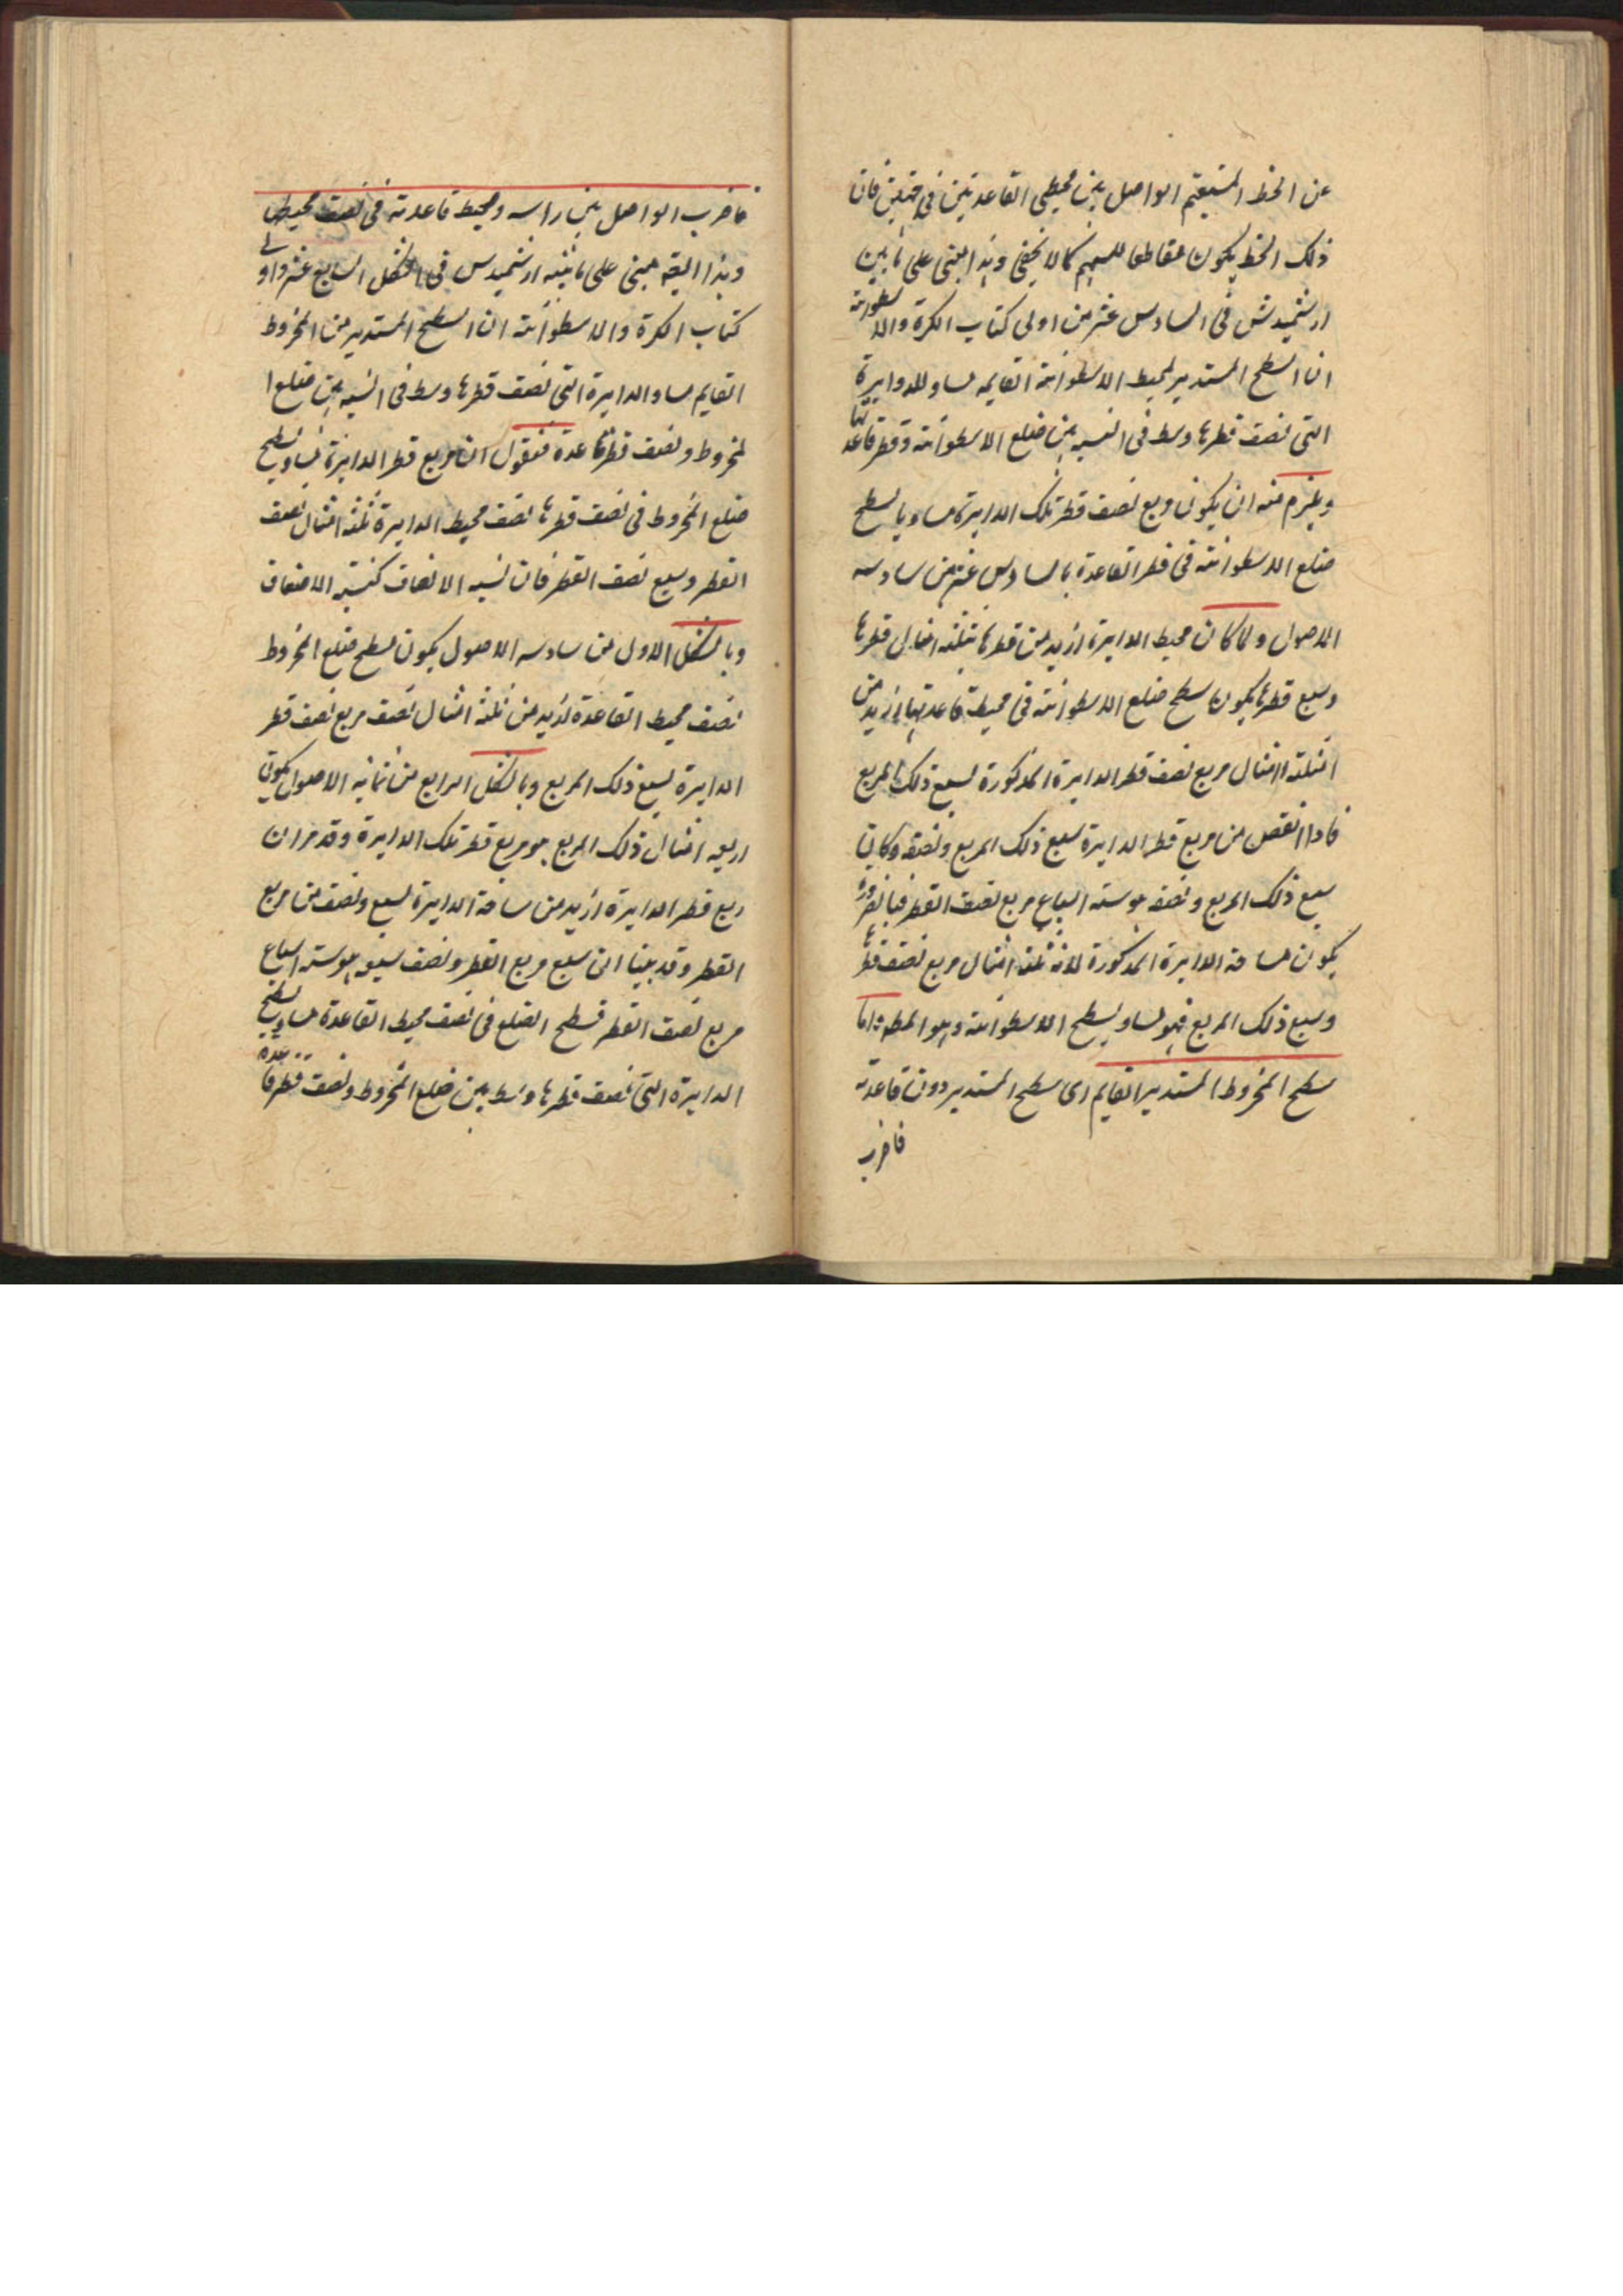 عن الخط المستقيم الواصل بين محيطى القاعدتين فى جهتين فان
ذلك الخط يكون مقاطعا للسهم كما لا يخفى وهذا مبنى على ما بين
ارشميدش فى السادس عشر من اولى كتاب الكرة والاسطوانة
ان السطح المستدير لمحيط الاسطوانة القايمه مساو للدوايرة
التى نصف قطرها وسط فى النسبه بين ضلع الاسطوانة وقطر قاعدتها
ويلزم منه ان يكون مربع نصف قطر تلك الدايرة مساويا لسطح
ضلع الاسطوانة فى قطر القاعدة بالسادس عشر من سادسه
الاصول ولما كان محيط الدايرة ازيد من قطرها بثلثه امثال قطرها
وسبع قطرها يكون سطح ضلع الاسطوانة فى محيط قاعدتها ازيد من
ثلثه امثال مربع نصف قطر الدايرة المذكورة بسبع ذلك المربع
فاذا انقص من مربع قطر الدايرة سبع ذلك المربع ونصفه وكان
سبع ذلك المربع ونصفه هو سته اسباع مربع نصف القطر فبالضرورة
يكون مساحة الدايرة المذكورة لانه ثلثه امثال مربع نصف قطرها
وسبع ذلك المربع فهو مساو لسطح الاسطوانة وهو المط واما
سطح المخروط المستدير القايم اى سطح المستدير دون قاعدته
فاضرب
فاضرب الواصل بين راسه ومحيط قاعدته فى نصف محيطها
وهذا ايضه مبنى على ما بينه ارشميدس فى الشكل السابع عشر من اولى
كتاب الكرة والاسطوانة ان السطح المستدير من المخروط
القايم مساو الدايرة التى نصف قطرها وسط فى النسبه بين ضلع ا
لمخروط ونصف قطر قاعدة فنقول ان مربع قطر الدايرة مساو لسطح
ضلع المخروط فى نصف قطرها نصف محيط الدايرة ثلثه امثال نصف
القطر وسبع نصف القطر فان نسبه الانصاف كنسبة الاضعاف
وبالشكل الاول من سادسه الاصول يكون سطح ضلع المخروط
نصف محيط القاعدة لزيد من ثلثه امثال نصف مربع نصف قطر
الدايرة بسبع ذلك المربع وبالشكل الرابع من ثمانيه الاصول يكون
اربعه امثال ذلك المربع هو مربع قطر تلك الدايرة وقد مر ان
ربع قطر الدايرة ازيد من مساحة الدايرة بسبع ونصف من مربع
القطر وقد بينا ان سبع مربع القطر ونصف سبعه هو سته اسباع
مربع نصف القطر فسطح الضلع فى نصف محيط القاعدة مساو لسطح
الدايرة التى نصف قطرها وسط بين ضلع المخروط ونصف قطر قاعدة